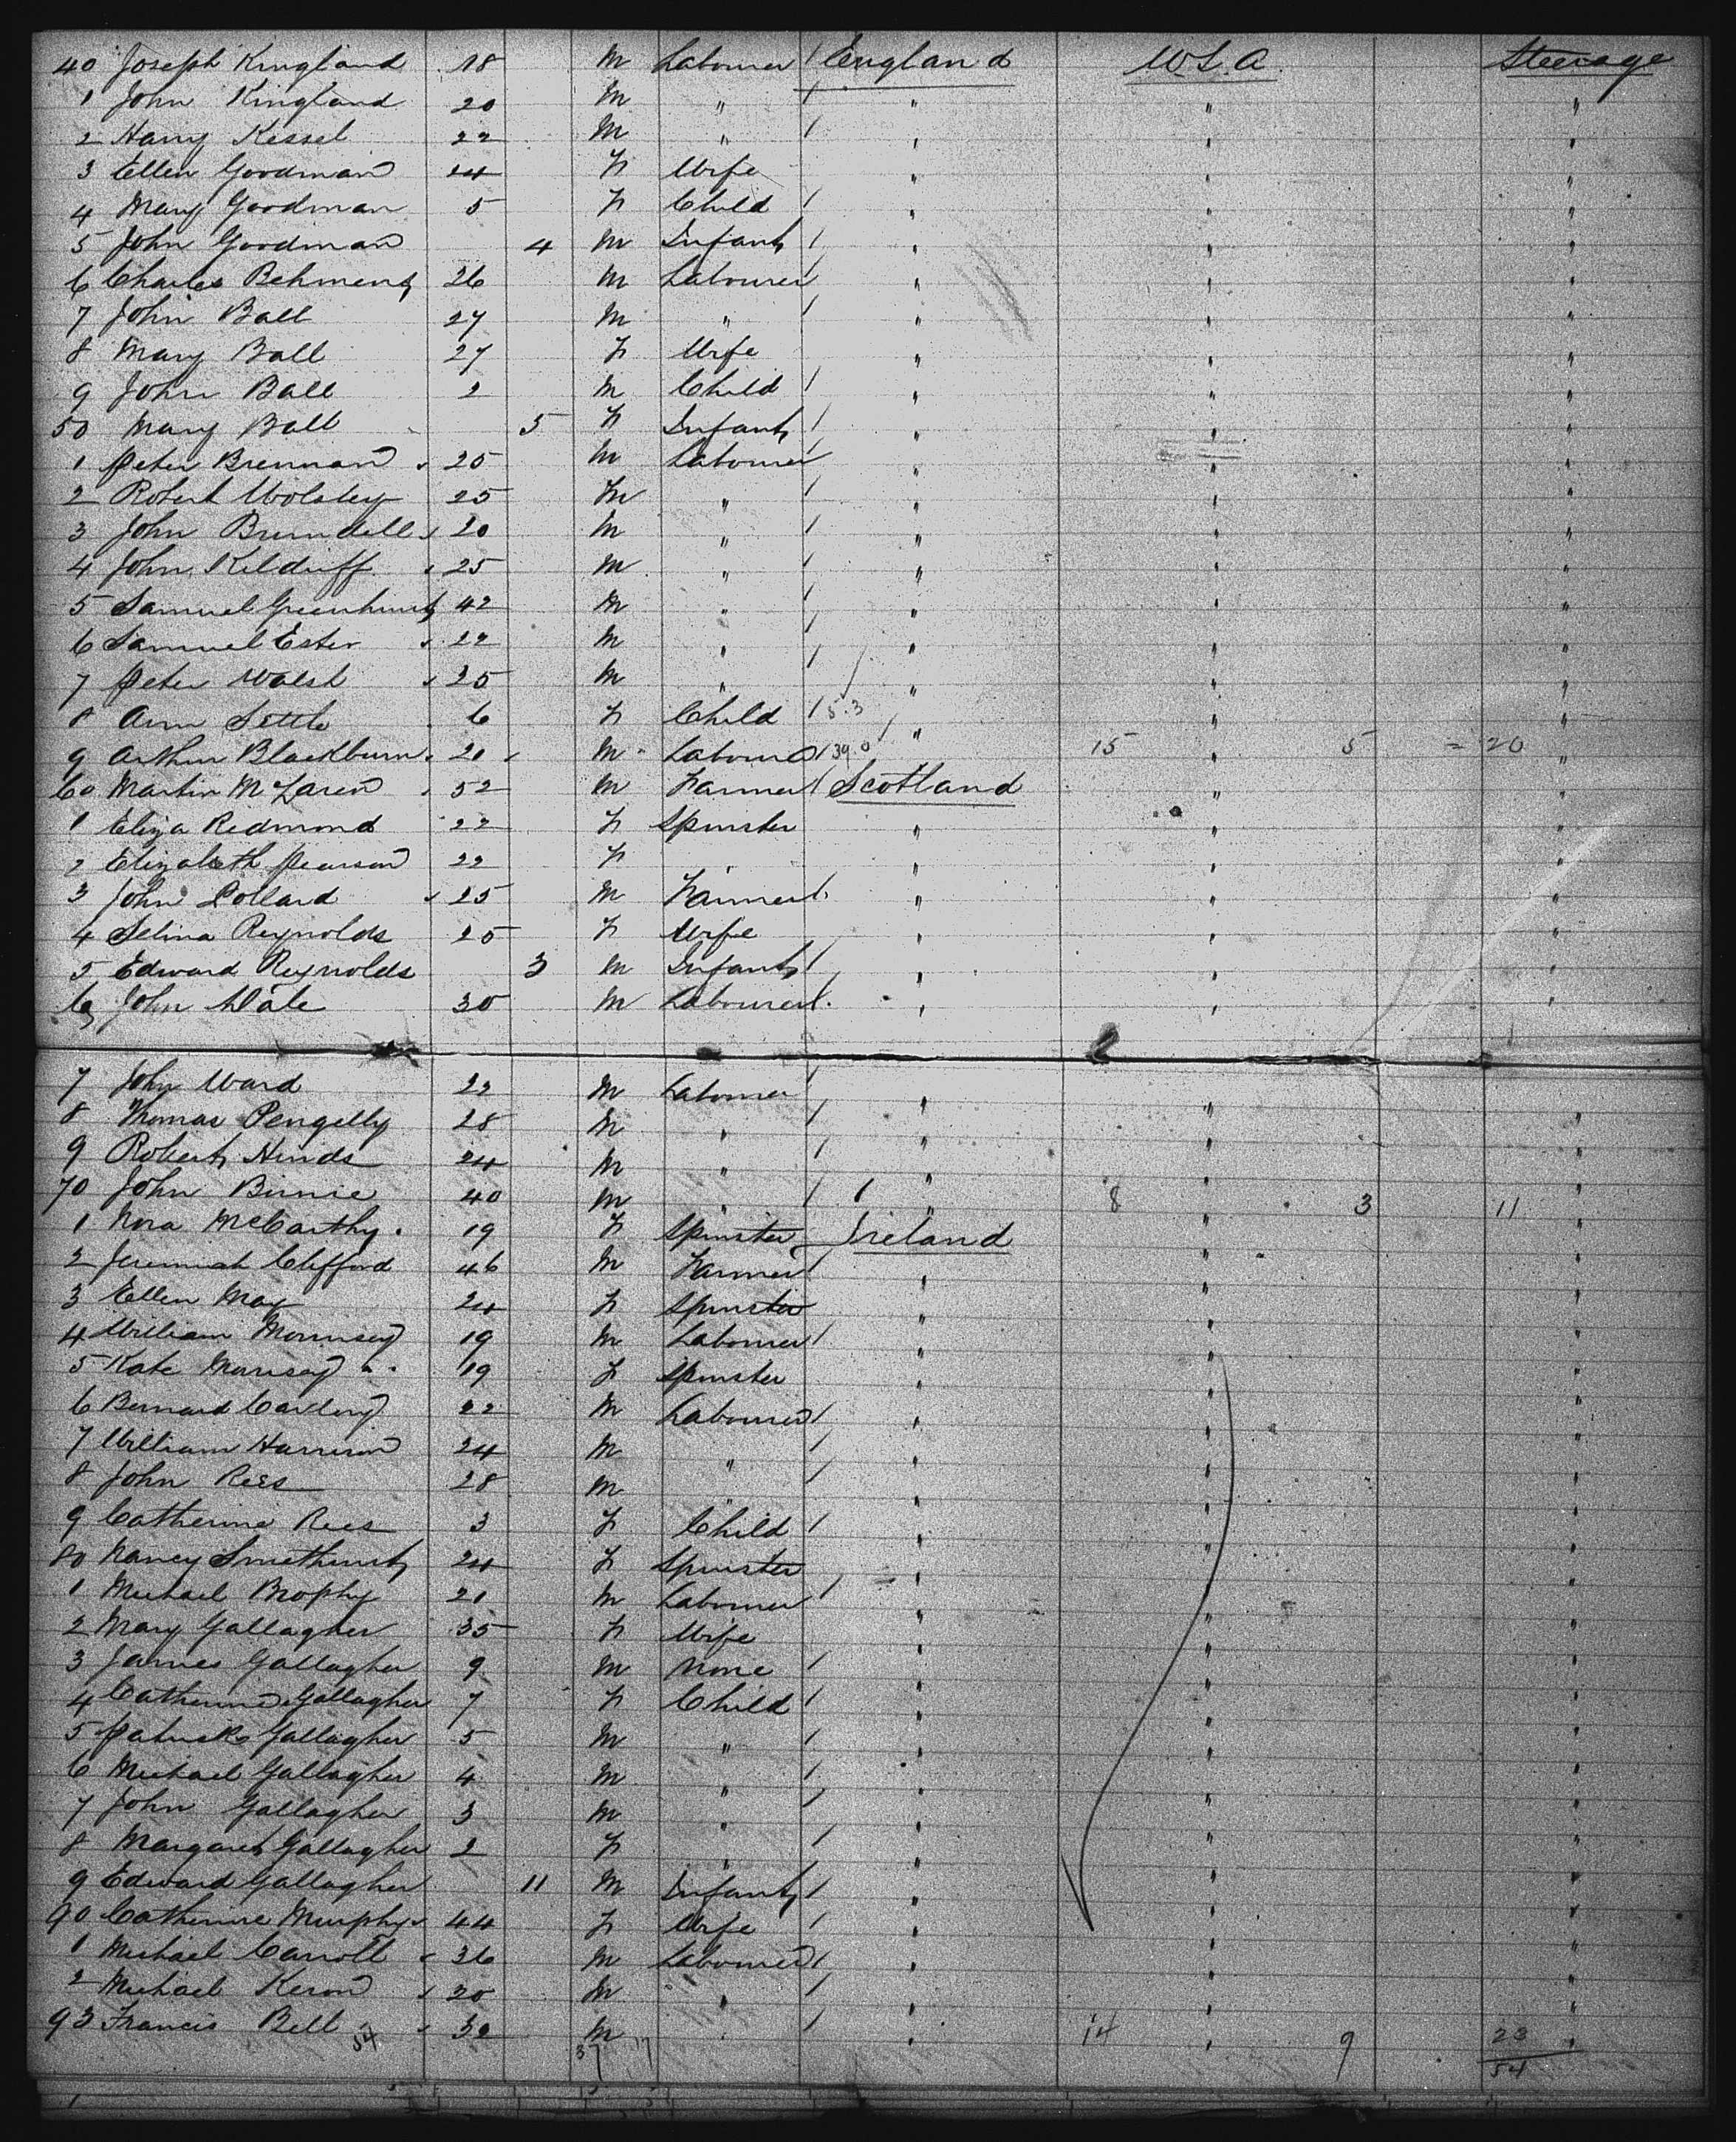 40 Joseph Kingland 18 M Labourer / England U.S.A. Steerage
1 John Kingland 20 M " / " " "
2 Harry Kessel 22 M " / " " "
3 Ellen Goodman 24 F Wife " " "
4 Mary Goodman 5 F Child / " " "
5 John Goodman 4 M Infant / " " "
6 Charles 26 M Labourer / " " "
7 John Ball 27 M " / " " "
8 Mary Ball 27 F Wife " " "
9 John Ball 2 M Child / " " "
50 Mary Ball 5 F Infant / " " "
1 Peter Brennan 25 M Labourer / " " "
2 Robert Wolsley 25 M " / " " "
3 John Brundell 20 M " / " " "
4 John Kilduff 25 M " / " " "
5 Samuel Greenhurst 42 M " / " " "
6 Samuel Ester 22 M " / " " "
7 Peter Walsh 25 M " / " " "
8 Ann Settle 6 F Child / 5.3 " " "
9 Arthur Blackburn 20 M Labourer / 39.0 " 15 " 5 = 20 "
60 Martin McLaren 52 M Farmer / Scotland " "
1 Eliza Redmond 22 F Spinster " " "
2 Elizabeth Pearson 22 F " " " "
3 John Pollard 25 M Farmer / " " "
4 Selina Reynolds 25 F Wife " " "
5 Edward Reynolds 3 M Infant / " " "
6 John Dale 30 M Labourer / " " "
7 John Ward 22 M Labourer / " " "
8 Thomas Pengelly 28 M " / " " "
9 Robert Hinds 24 M " / " " "
70 John Binnie 40 M " / " 8 " 3 11 "
1 Nora McCarthy 19 F Spinster Ireland " "
2 Jeremiah Clifford 46 M Farmer / " " "
3 Ellen May 24 F Spinster " " "
4 William Morrisey 19 M Labourer / " " "
5 Kate Morrisey 19 F Spinster " " "
6 Bernard 22 M Labourer / " " "
7 William Harrison 24 M " / " " "
8 John Rees 28 M " / " " "
9 Catherine Rees 3 F Child / " " "
80 Nancy Smethurst 24 F Spinster " " "
1 Michael Brophy 20 M Labourer / " " "
2 Mary Gallagher 35 F Wife " " "
3 James Gallagher 9 M None / " " "
4 Catherine Gallagher 7 F Child / " " "
5 Patrick Gallagher 5 M " / " " "
6 Michael Gallagher 4 M " / " " "
7 John Gallagher 3 M " / " " "
8 Margaret Gallagher 2 F " / " " "
9 Edward Gallagher 11 M Infant / " " "
90 Catherine Murphy 44 F Wife / " " "
1 Michael Carroll 36 M Labourer / " " "
2 Michael Keron 20 M " / " " "
93 Francis Bell 32 M " / " 14 " 9 23 "
54 37 17 54